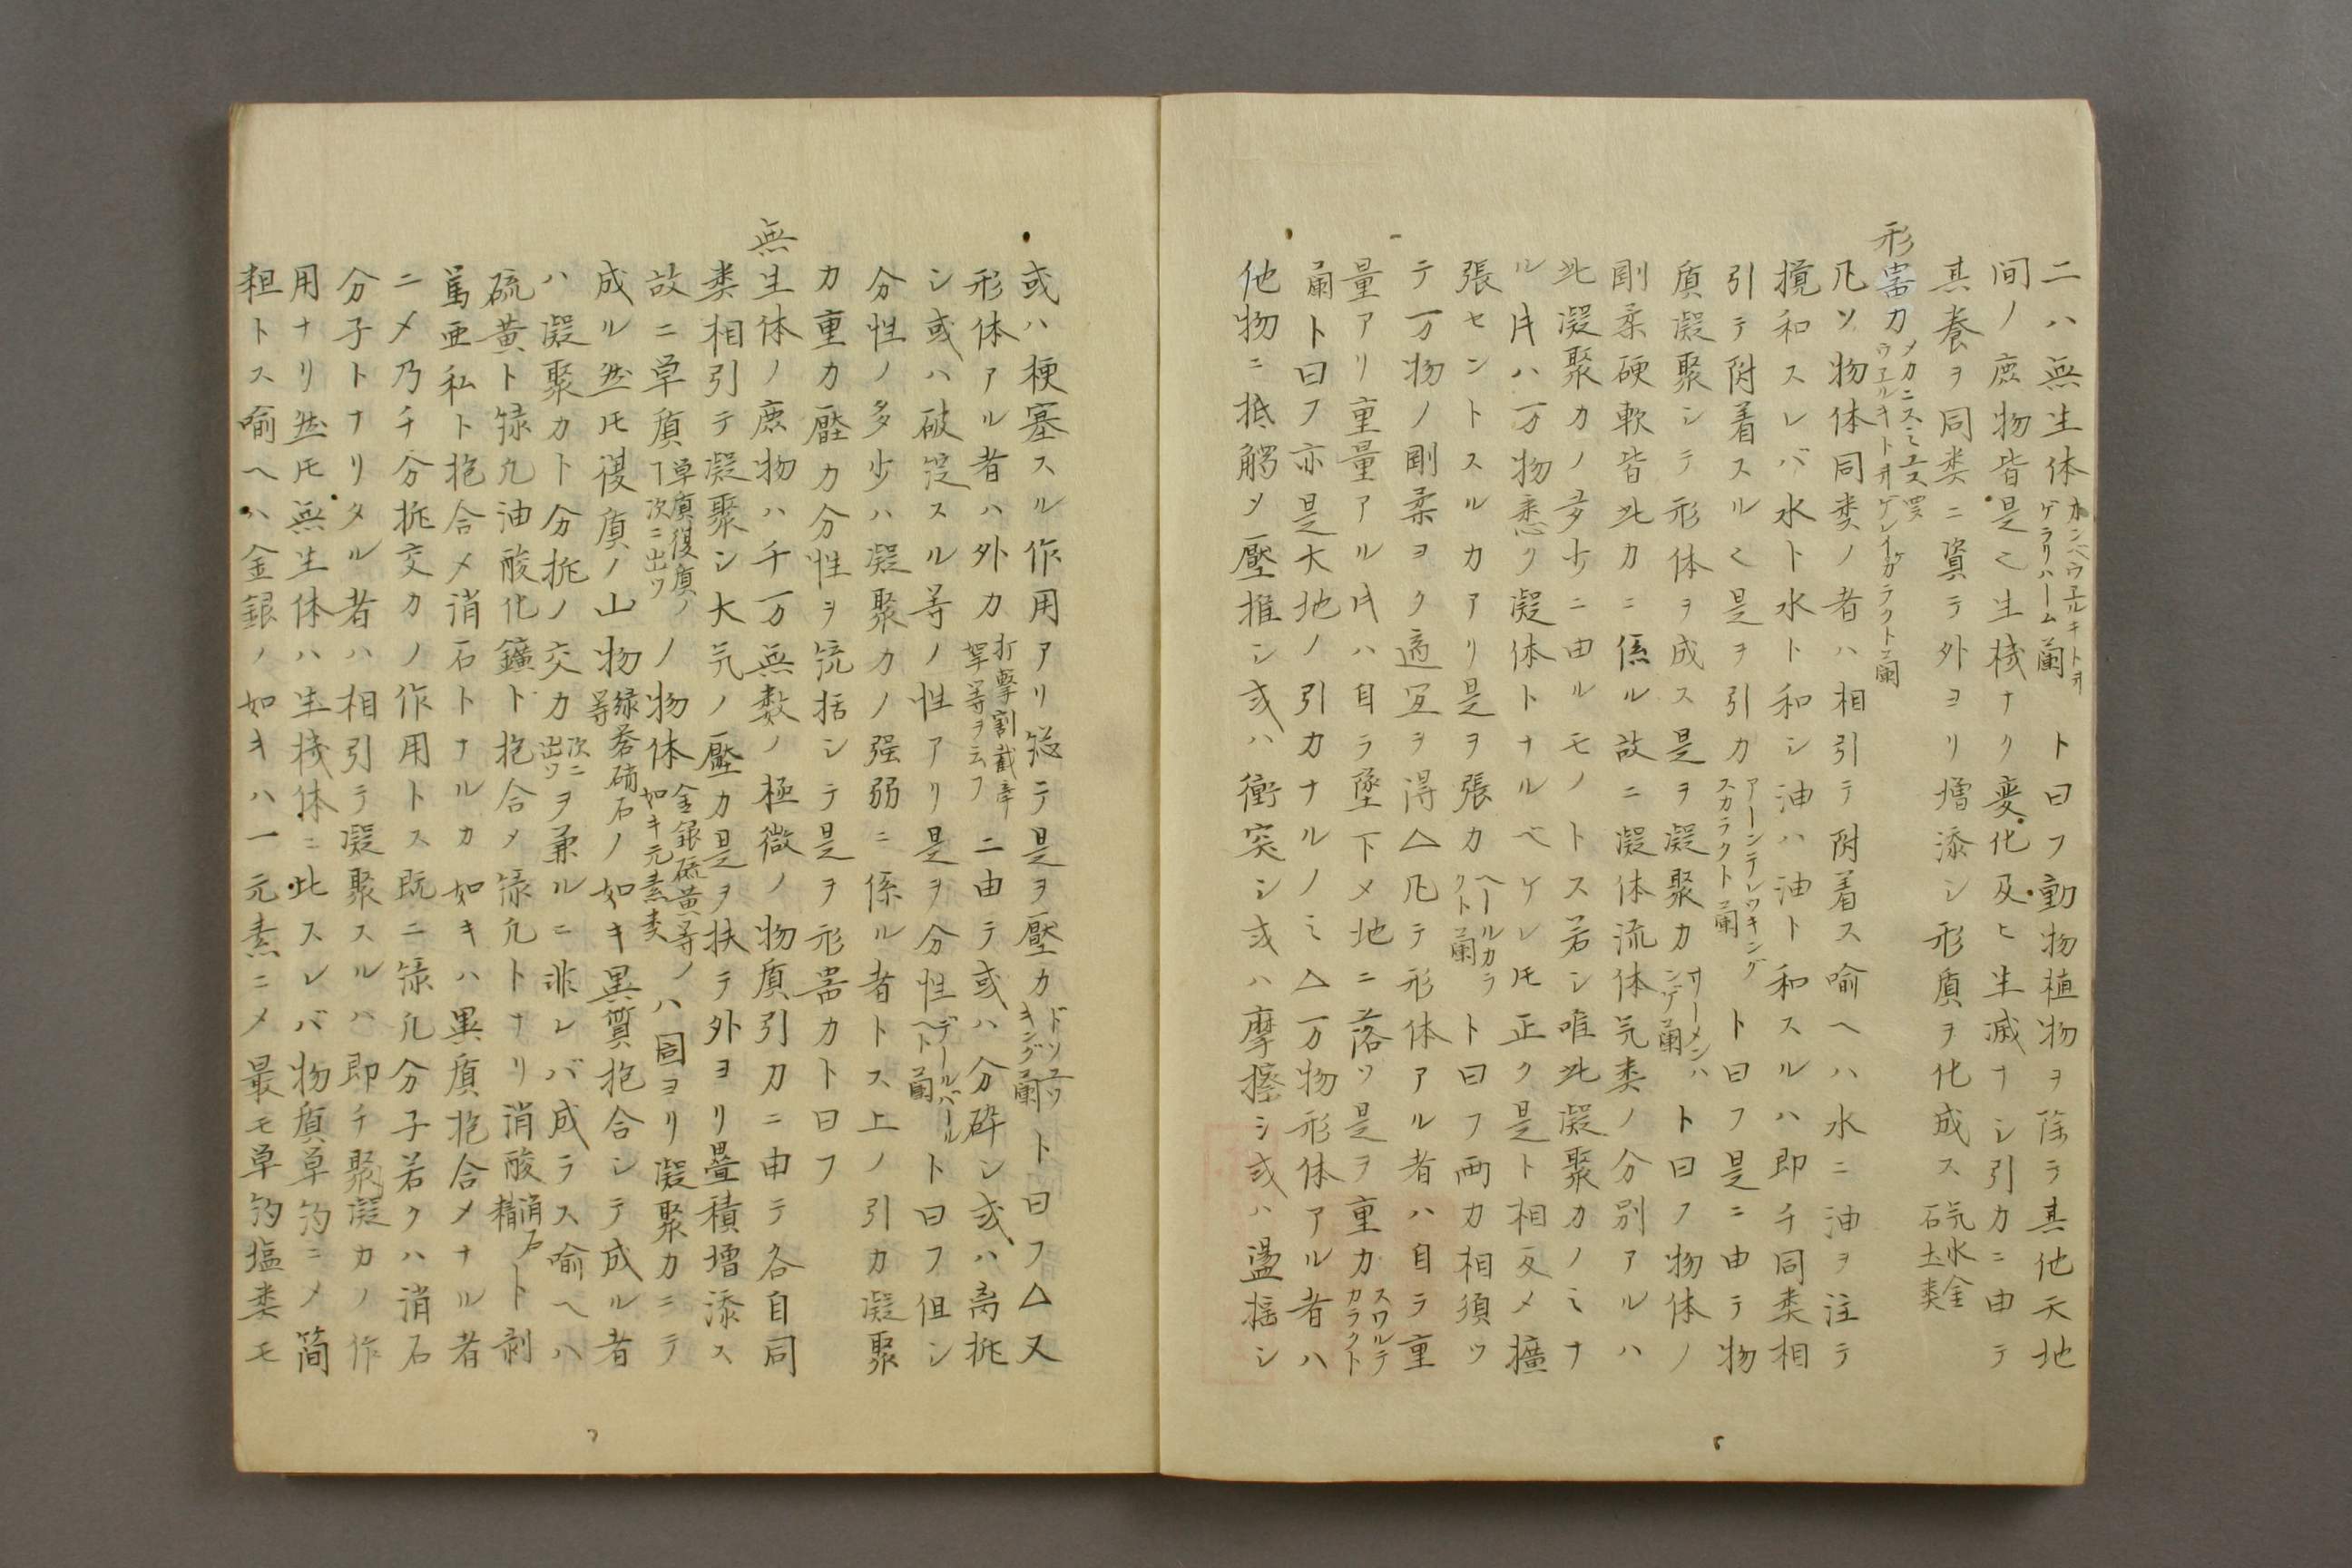 二ハ無生体オンベウェルキトオゲラリハーム蘭ト曰フ動物植物ヲ除テ其他天地
间ノ庶物皆是ミ生機ナク変化及ヒ生滅ナシ引力ニ由テ
其養ヲ同类ニ資テ外ヨリ増添シ形質ヲ化成ス気水金石土类
形噐力メカニスミュス羅ウェルキトオイゲレイカラクト蘭
凡ソ物体同类ノ者ハ相引テ附着ス喻ヘハ水ニ油ヲ注テ
撹和スレバ水ト水ト和シ油ハ油ト和スルハ即チ同类相
引テ附着スル也是ヲ引力アーンテレッキングスカラクト蘭ト曰フ是ニ由テ物
質凝聚シテ形体ヲ成ス是ヲ凝聚力サーメンハンゲ蘭ト曰フ物体ノ
剛柔硬軟皆此力ニ係ル故ニ凝体流体気类ノ分別アルハ
此凝聚力ノ多少ニ由ルモノトス若シ唯此凝聚力ノミナ
ル片ハ万物悉ク凝体トナルベケレ圧正ク是ト相反メ擴
張セントスル力アリ是ヲ張力ヘールカラクト蘭ト曰フ両力相須ッ
テ万物ノ剛柔ヨク適宜ヲ得△凡テ形体アル者ハ自ラ重
量アリ重量アル片ハ自ラ墜下メ地ニ落ツ是ヲ重力スワルテカラクト
蘭ト曰フ亦是大地ノ引力ナルノミ△万物形体アル者ハ
他物ニ抵觸メ壓推シ或ハ衝突シ或ハ摩擦シ或ハ盪揺シ
或ハ梗塞スル作用アリ総テ是ヲ壓力ドリュッキング蘭ト曰フ△又
形体アル者ハ外力打擊割截牽挐等ヲ云フニ由テ或ハ分碎シ或ハ离拆
シ或ハ破綻スル等ノ性アリ是ヲ分性デールバールヘト蘭ト曰フ但シ
分性ノ多少ハ凝聚力ノ强弱ニ係ル者トス上ノ引力凝聚
力重力壓力分性ヲ統括シテ是ヲ形噐力ト曰フ
無生体ノ庶物ハ千万無数ノ極微ノ物質引力ニ由テ各自同
类相引テ凝聚シ大気ノ壓力是ヲ扶テ外ヨリ疊積増添ス
故ニ单質单質複質ノ次ニ出ツノ物体金銀硫黄等ノ如キ元素类ハ固ヨリ凝聚力ニテ
成ル然圧複質ノ山物緑礬硝石等ノ如キ異質抱合シテ成ル者
ハ凝聚力ト分拆ノ交力次ニ出ツヲ兼ルニ非レバ成ラス喻ヘハ
硫黄ト緑凡油酸化鑛ト抱合メ緑凡トナリ消酸消石精ト剥
篤亜私ト抱合メ消石トナルカ如キハ異質抱合メナル者
ニメ乃チ分拆交力ノ作用トス既ニ緑凡分子若クハ消石
分子トナリタル者ハ相引テ凝聚スルハ即チ聚凝力ノ作
用ナリ然圧無生体ハ生機体ニ此スレバ物質单匀ニメ简
粗トス喻ヘハ金銀ノ如キハ一元素ニメ最モ单匀塩类モ